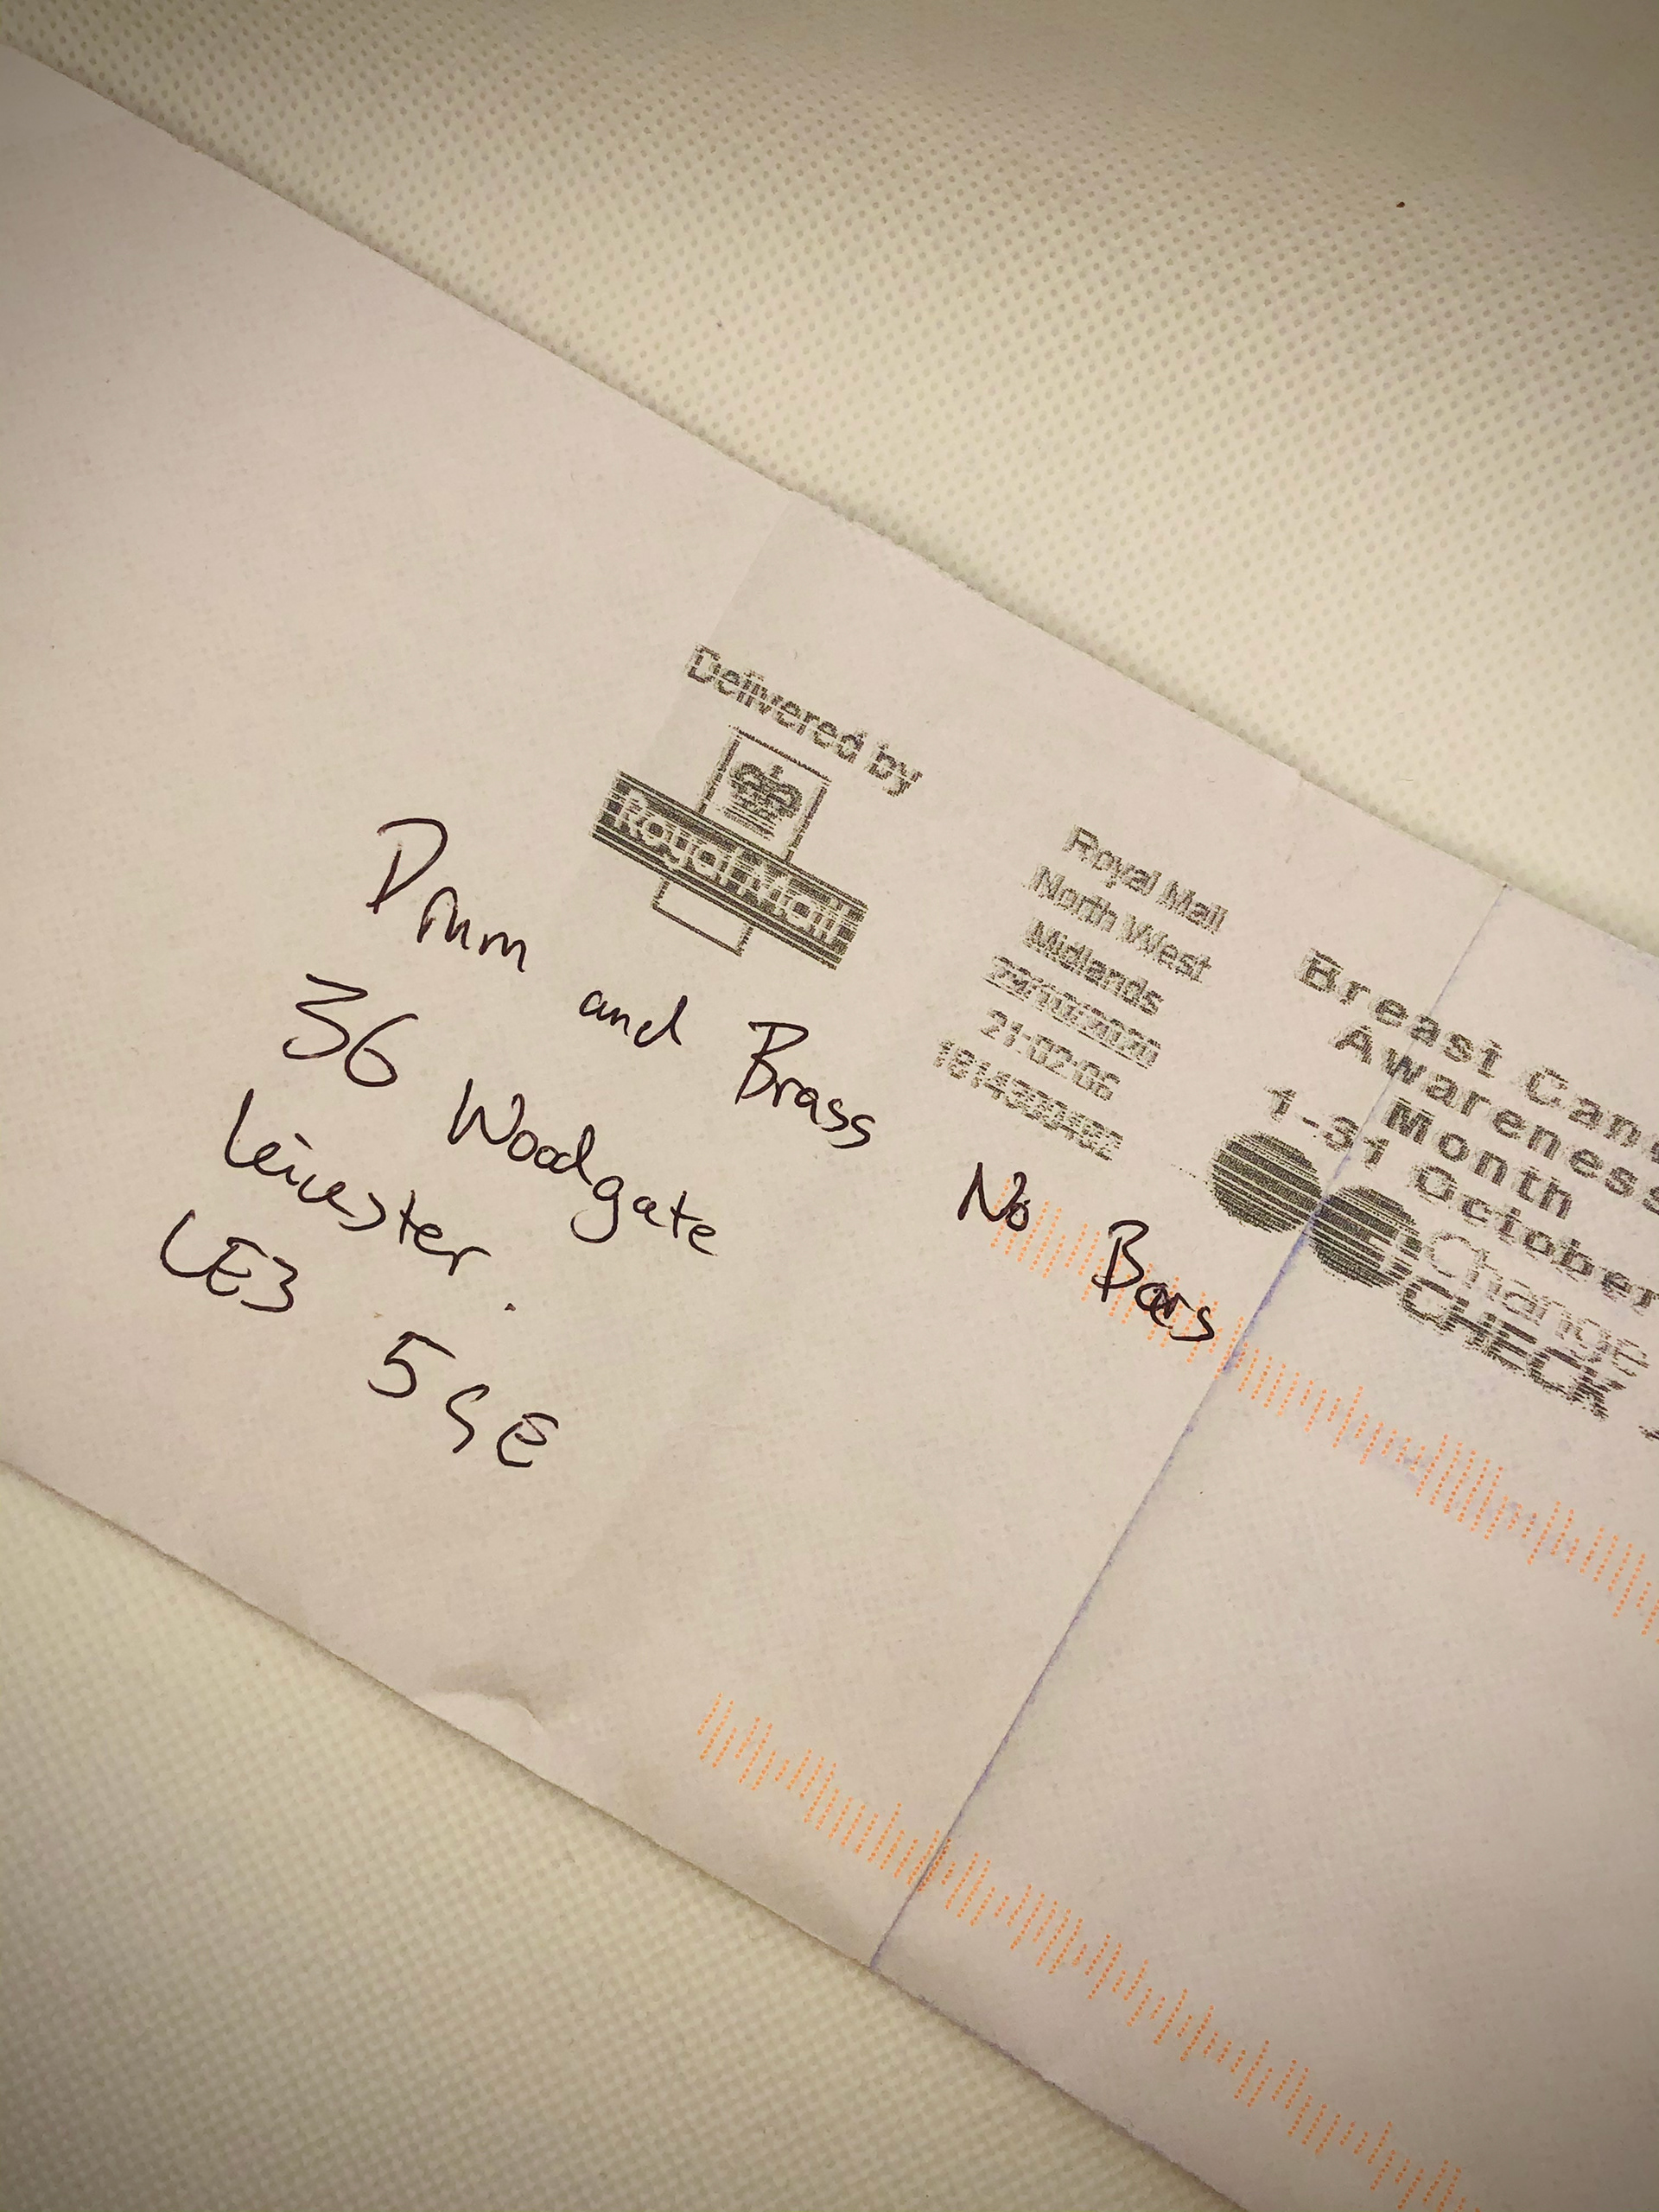 Delivered by
Royal Mail
Royal Mail
North West
Midlands
29/10/2020
21:02:06
1814300482
Breast Can
Awareness
Month
1-31 October
Change
CHECK
Drum and Brass No
36 Woodgate
Leicester.
LE3 5GE